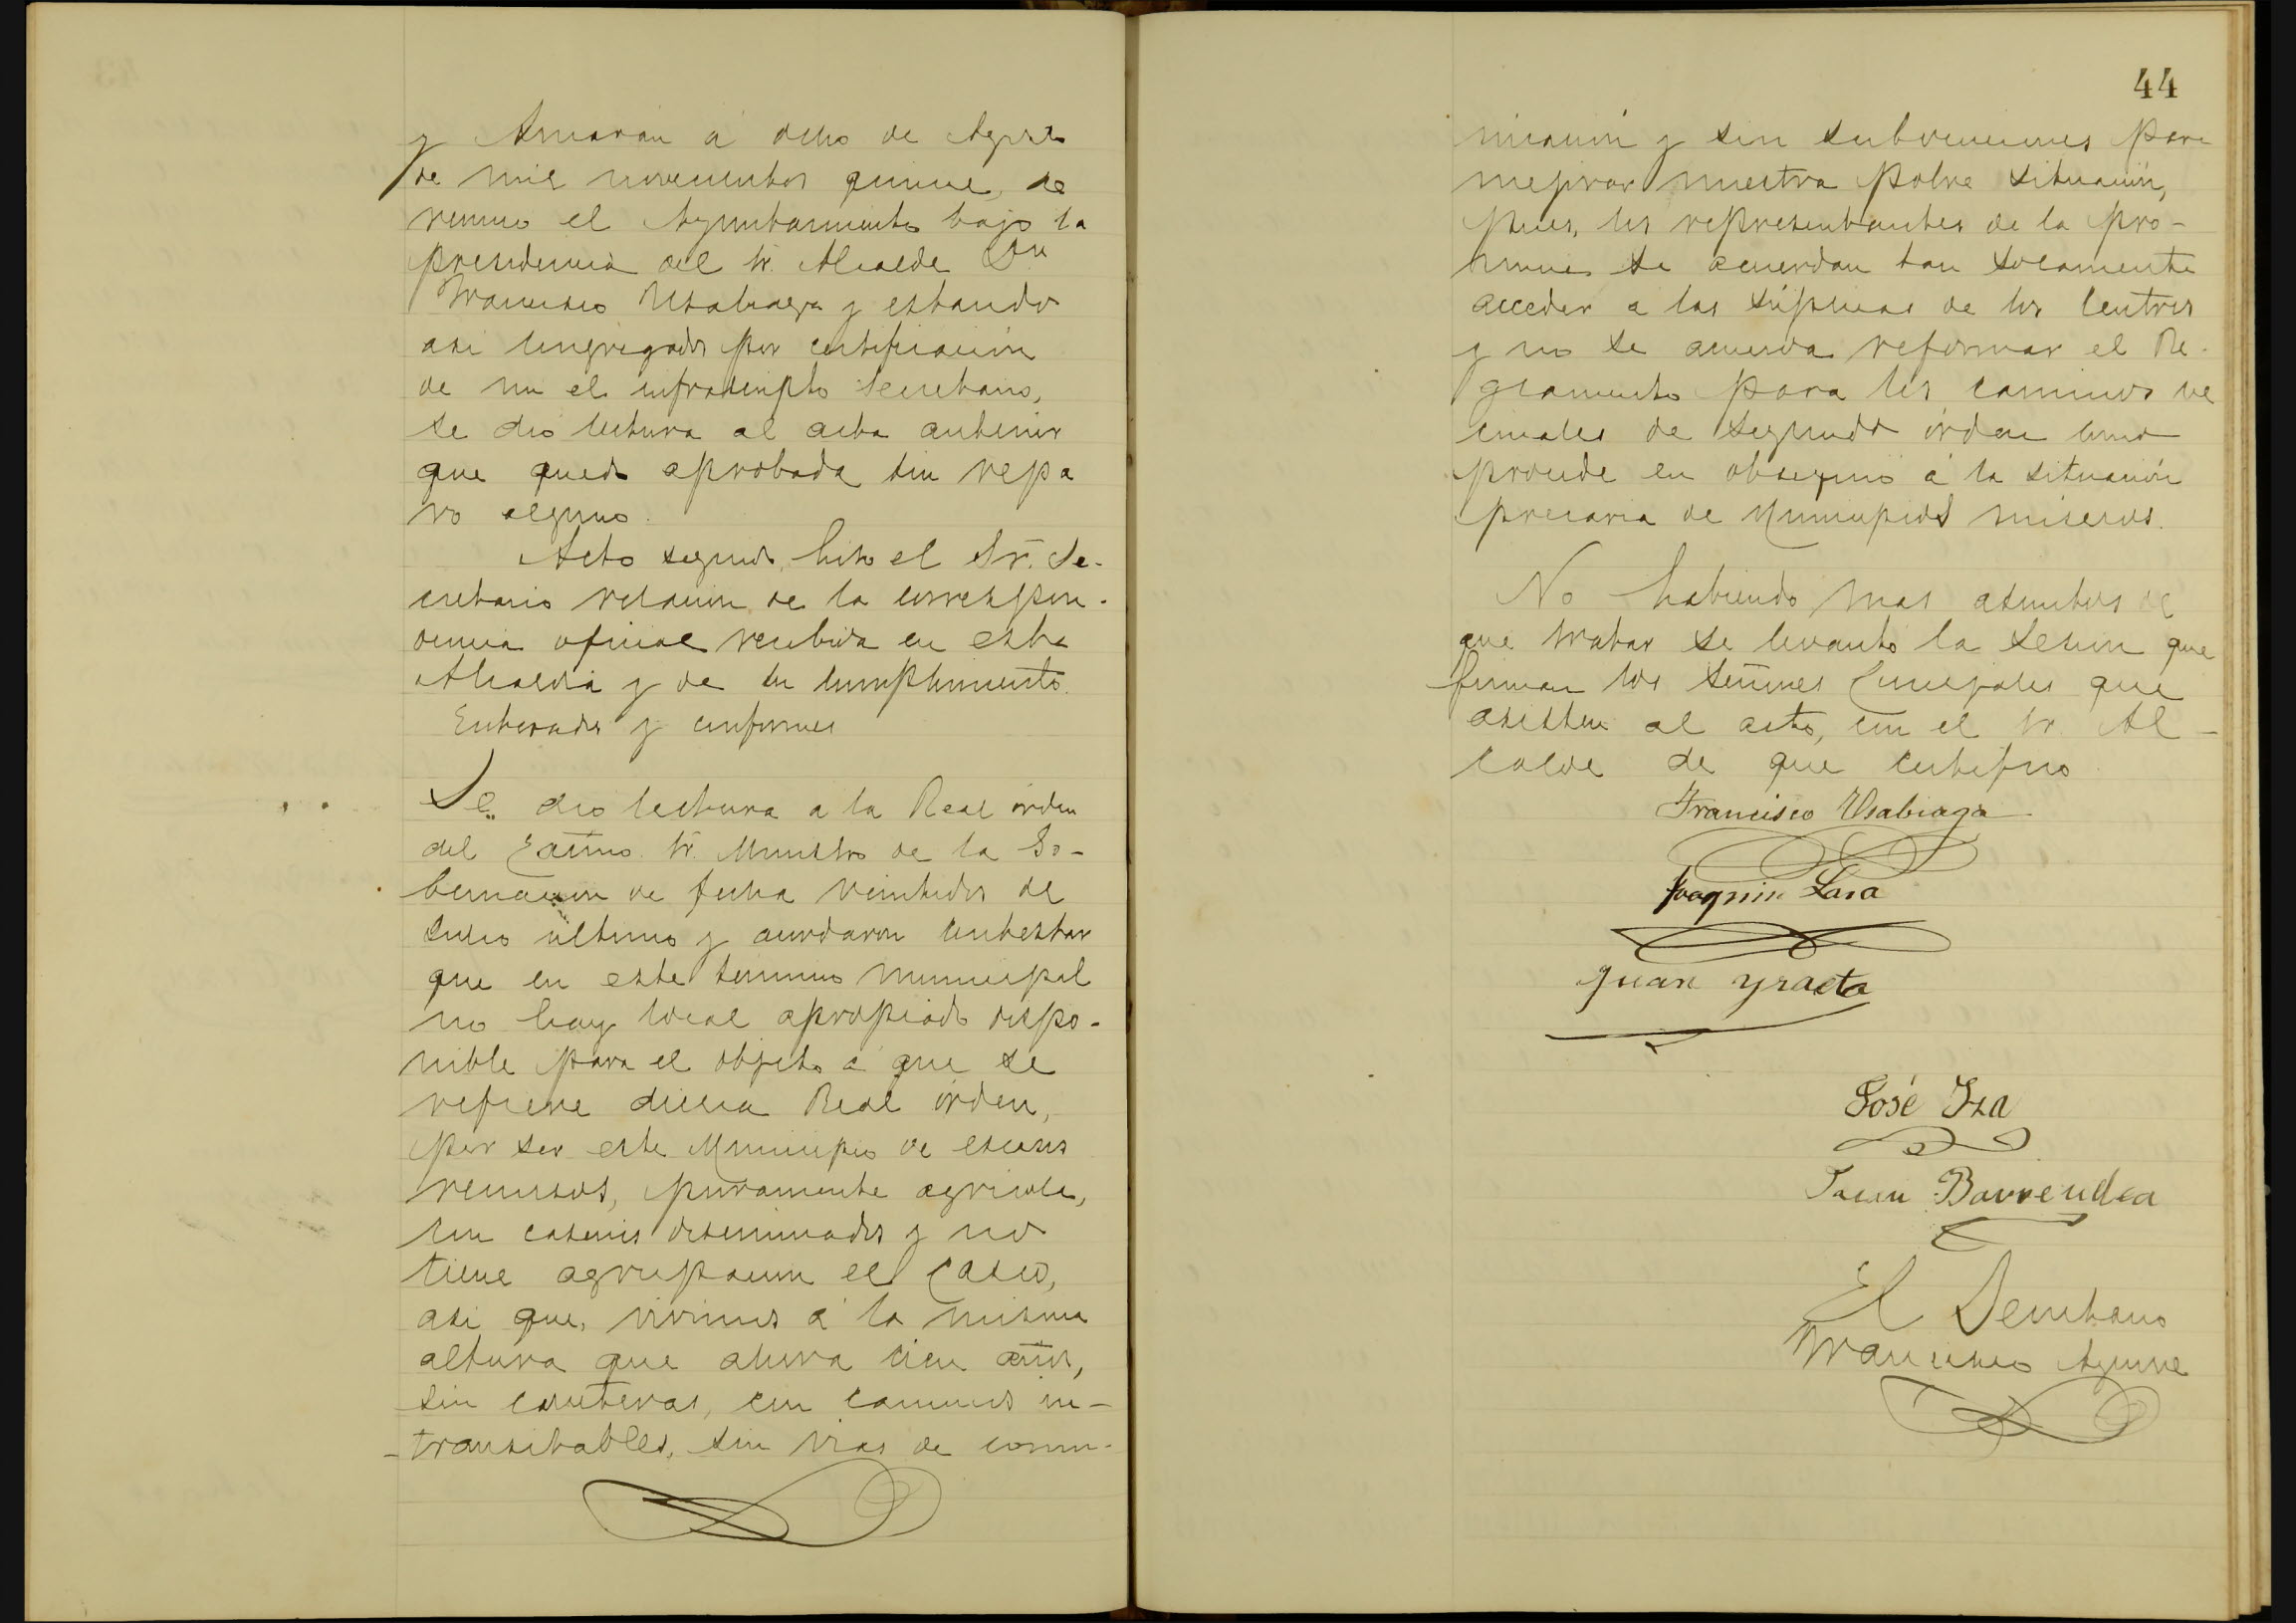 y Amarán á ocho de Agosto
de mil novecientos quince, se
reunio el Ayuntamiento bajo la
presidencia del Sr. Alcalde Dn
Francisco Usabiaga y estando
asi congregados por certificación
de mi el infrascripto Secretario,
se dio lectura al acta anterior
que quedo aprobada sin repa
ro alguno.
Acto seguido, hizo el Sr. Se-
cretario relacion de la correspon-
dencia oficial recibida en esta
Alcaldia y de su cumplimiento.
Enterados y conformes
Se dio lectura a la Real orden
del Excmo. Sr. Ministro de la Go-
bernacion de fecha veintidos de
Julio último y acordaron contestar
que en este termino municipal
no hay local apropiado dispo-
nible para el objeto a que se
refiere dicha Real órden,
por ser este Municipio de escasos
recursos, puramente agricola,
con caserios diseminados y no
tiene agrupacion el casco,
asi que, vivimos á la misma
altura que ahora cien años,
sin carreteras, con caminos in-
-transitables, sin vias de comu-
44
nicación y sin subvenciones para
mejorar nuestra pobre situación,
pues, los representantes de la pro-
vincia se acuerdan tan solamente
acceder a las súplicas de los Centros
y no se acuerda reformar el Re-
glamento para los caminos ve
cinales de segundo órden como
procede en obsequio á la situación
precaria de Municipios miseros.
No habiendo mas asuntos de
que tratar se levantó la sesion que
firman los señores Concejales que
asisten al acto, con el Sr. Al-
calde de que certifico.
Francisco Usabiaga
Joaquin Lasa
Juan Yraeta
José Iza
Juan Barrendea
El Secretario
Francisco Aguirre